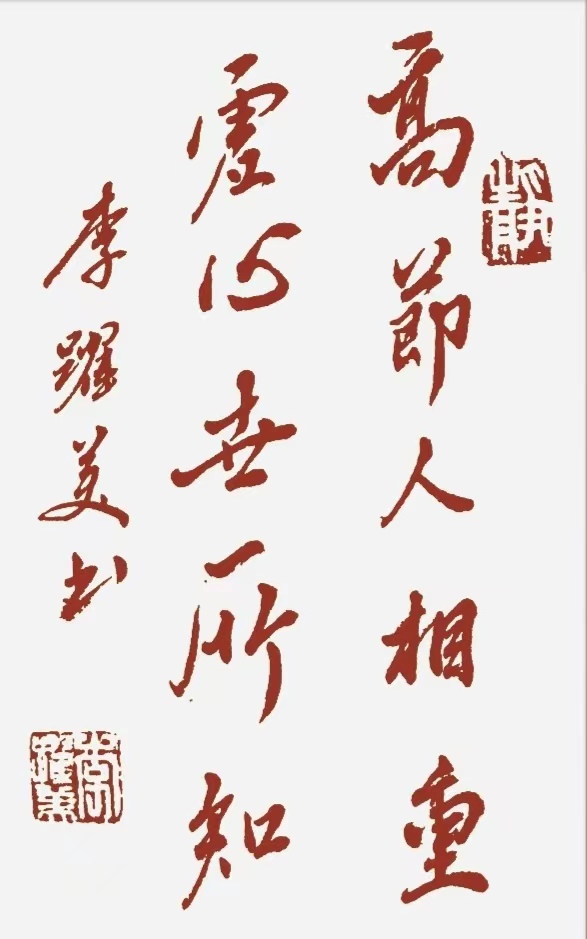 高節人相重
虛心世所知
李躍美书